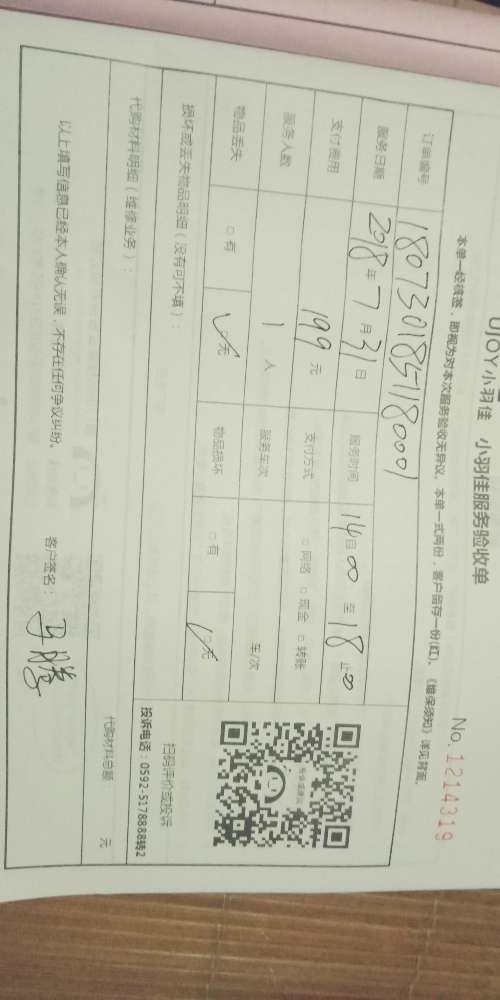 UJOY小羽佳 小羽佳服务验收单
No. 1214319
本单一经核签，即视为对本次服务验收无异议。本单一式两份，客户留存一份(红)。《维保须知》详见背面。
订单编号
服务日期 2018年 7月31日 服务时间 14 00 至 18 止00
支付费用 199 元 支付方式 □网络 □现金 □转账
服务人数 1 人 服务车次 车/次
物品丢失 □有 ✓□无 物品损坏 □有 ✓□无
损坏或丢失物品明细（没有可不填）：
扫码评价或投诉
投诉电话：0592-5178888转2
代购材料明细（维修业务）：
代购材料总额 元
以上填写信息已经本人确认无误，不存在任何争议纠纷。
客户签名：